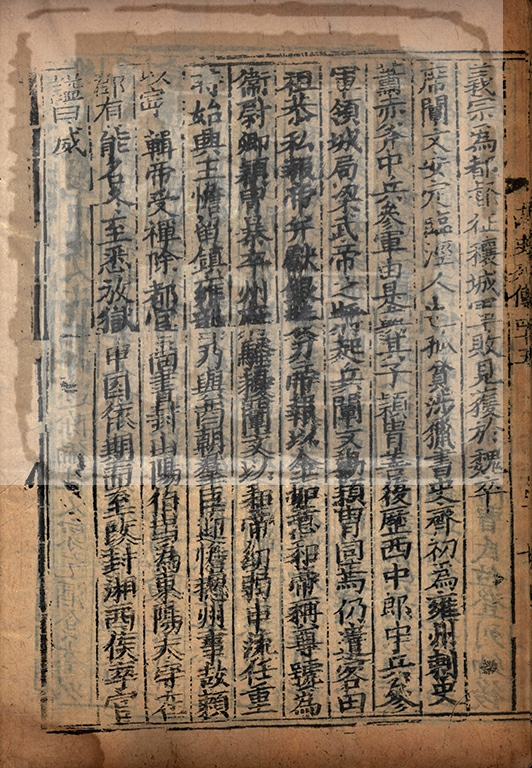 義宗為都督征穰城軍敗見獲於魏卒
席闡文安定臨涇人也孤貧涉獵書史齊初為雍州刺史
蕭赤斧中兵參軍由是與其子穎胄善後歷西中郎中兵參
軍領城局及武帝之將起兵闡文勸穎胄同焉仍遣客田
祖恭私報帝并獻銀裝刀帝報以金如意和帝稱尊號為
衛尉卿穎胄暴卒州府騷擾闡文以和帝幼弱中流任重
時始興王憺留鎮雍部乃與西朝羣臣迎憺總州事故賴
以寧輯帝受禪除都官尚書封山陽伯出為東陽太守在
郡有能名冬至悉放獄中囚依期而至改封湘西侯卒官
諡曰威